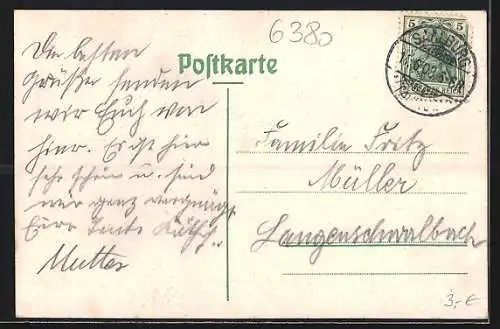 6380
Postkarte
5 5
SAALBURG
Die besten
Grüße senden
wir Euch von
hier. Es ist hier
sehr schön u. sind
wir ganz vergnügt
Eure Tante Käthch.
Mutter
Familie Fritz
Müller
Langenschwalbach
3,-€